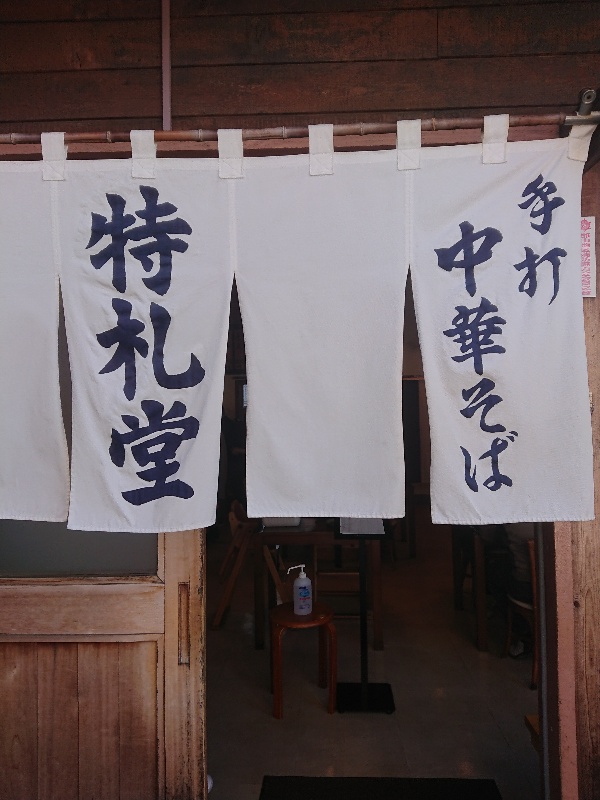 手打
中華そば
特札堂